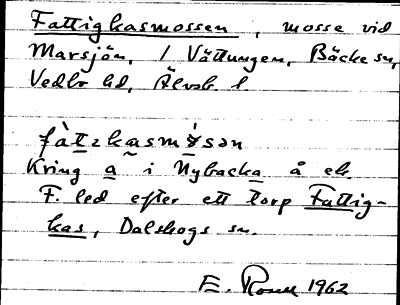 Fattigkasmossen, mosse vid
Marsjön, / Vättungen, Bäcke sn,
Vedbo hd, Älvsb l
fàtzkasmósən
Kring a i Nybacka å ek.
F. led efter ett torp Fattig-
kas, Dalskogs sn.
E. Rosell 1962